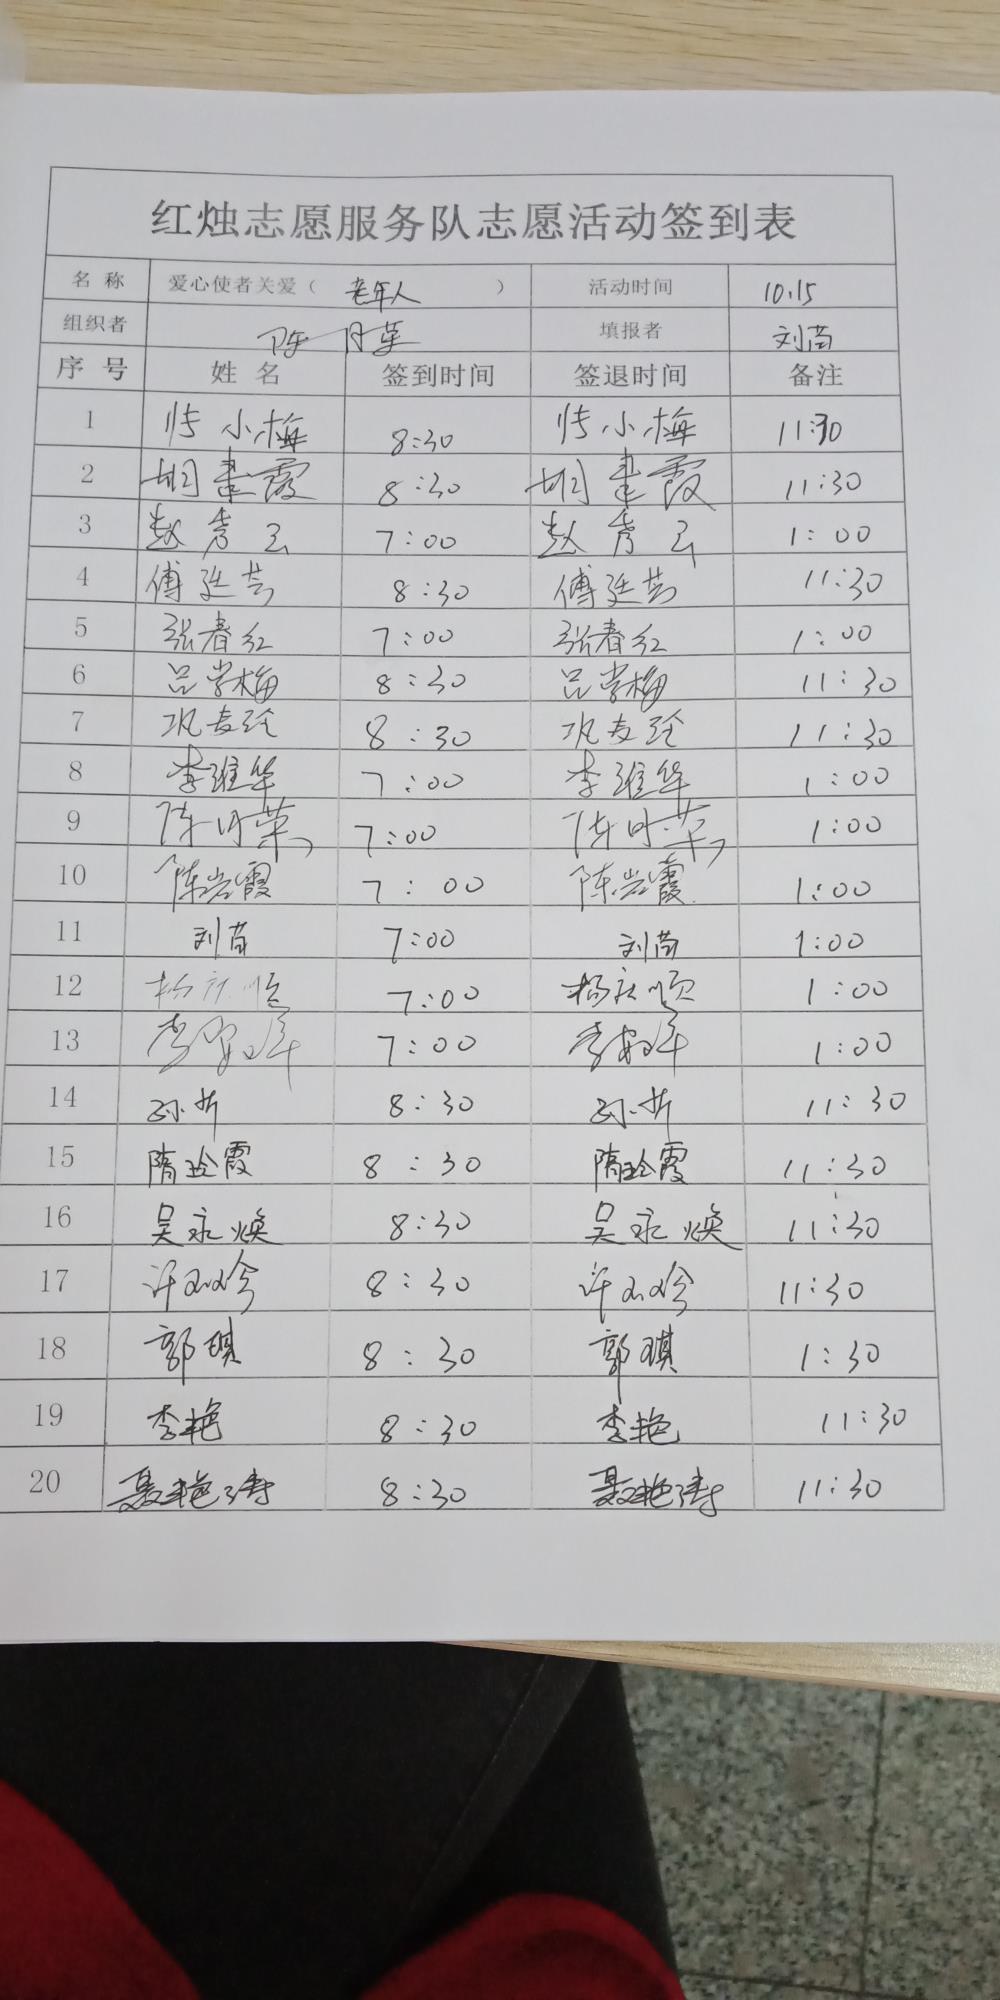 红烛志愿服务队志愿活动签到表
名 称 爱心使者关爱（ 老年人 ） 活动时间 10.15
组织者 陈月荣 填报者 刘苗
序 号 姓 名 签到时间 签退时间 备注
1 小梅 8:30 小梅 11:30
2 胡建霞 8:30 胡建霞 11:30
3 赵秀云 7:00 赵秀云 1:00
4 傅廷芸 8:30 傅廷芸 11:30
5 张春红 7:00 张春红 1:00
6 吕学梅 8:30 吕学梅 11:30
7 巩 8:30 巩 11:30
8 李维华 7:00 李维华 1:00
9 陈月荣 7:00 陈月荣 1:00
10 陈岩霞 7:00 陈岩霞 1:00
11 刘苗 7:00 刘苗 1:00
12 杨庆顺 7:00 杨庆顺 1:00
13 李 7:00 李 1:00
14 孙 8:30 孙 11:30
15 隋玲霞 8:30 隋玲霞 11:30
16 吴永焕 8:30 吴永焕 11:30
17 许 8:30 许 11:30
18 郭琪 8:30 郭琪 1:30
19 李艳 8:30 李艳 11:30
20 聂艳涛 8:30 聂艳涛 11:30